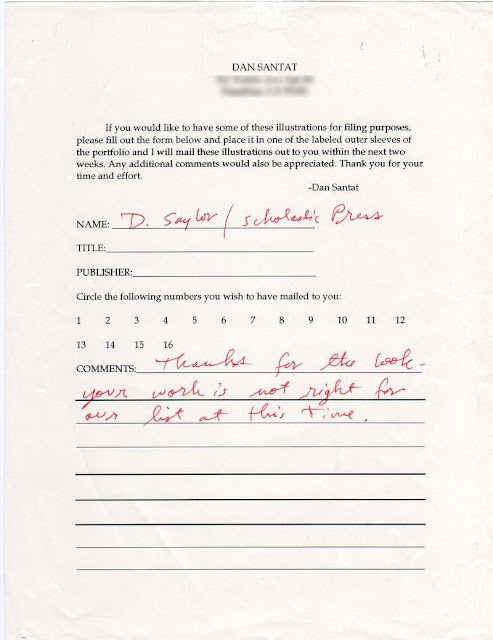 DAN SANTAT
If you would like to have some of these illustrations for filing purposes,
please fill out the form below and place it in one of the labeled outer sleeves of
the portfolio and I will mail these illustrations out to you within the next two
weeks. Any additional comments would also be appreciated. Thank you for your
time and effort.
-Dan Santat
NAME: D. Saylor / Scholastic Press
TITLE:
PUBLISHER:
Circle the following numbers you wish to have mailed to you:
1 2 3 4 5 6 7 8 9 10 11 12
13 14 15 16
COMMENTS: Thanks for the look -
your work is not right for
our list at this time.